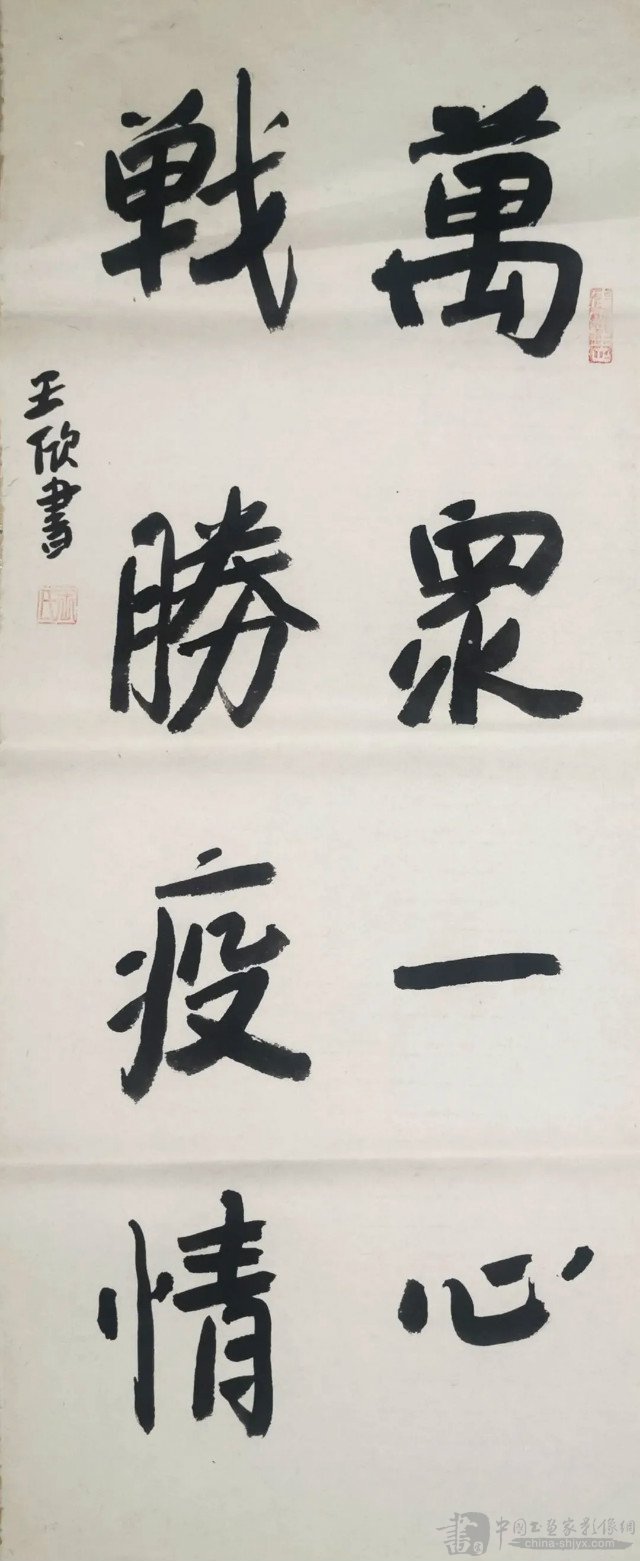 萬眾一心
戦勝疫情
王欣書
書
中國书画家影像網
china-shjyx.com